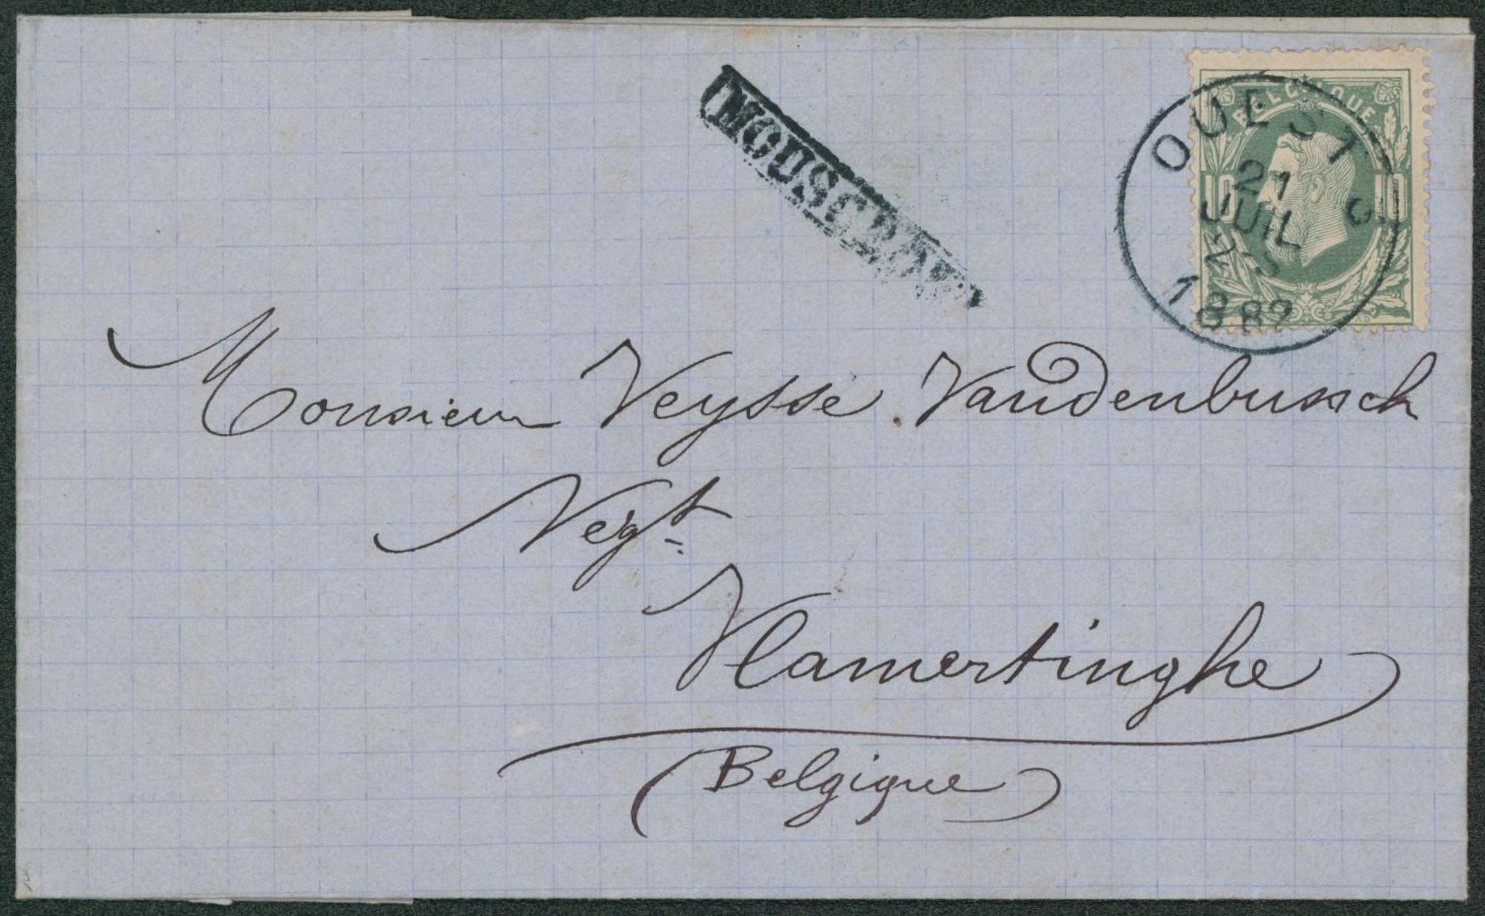 MOUSCRON
BELGIQUE
10 10
OUEST 2
21
JUIL
1882
Monsieur Veysse Vandenbussch
Negt
Vlamertinghe
(Belgique)